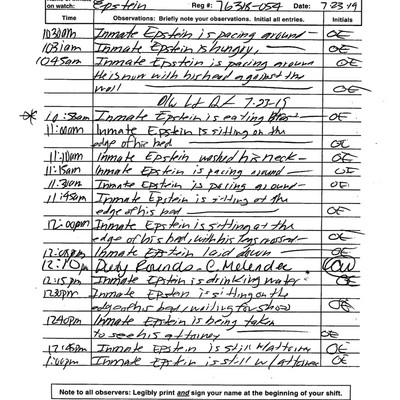 on watch: Epstein Reg #: 76318-054 Date: 7-23-19
Time Observations: Briefly note your observations. Initial all entries. Initials
10:30am Inmate Epstein is pacing around — OE
10:31am Inmate Epstein is hungry, — OE
10:45am Inmate Epstein is pacing around OE
He is now with his head against the
wall
7-23-19
Inmate Epstein is eating OE
11:00am Inmate Epstein is sitting on the
edge of his bed OE
11:10am Inmate Epstein washed his neck — OE
11:15am Inmate Epstein is pacing around — OE
11:30am Inmate Epstein is pacing around — OE
11:45am Inmate Epstein is sitting at the
edge of his bed OE
12:00pm Inmate Epstein is sitting at the
edge of his bed, with his legs OE
Inmate Epstein laid down OE
12:10pm Duty Rounds - C. Melendez
12:15pm Inmate Epstein is drinking water OE
12:30pm Inmate Epstein is sitting on the
edge of his bed, waiting for OE
12:40pm Inmate Epstein is being taken
to see his attorney OE
12:45pm Inmate Epstein is still w/ attorney OE
1:00pm Inmate Epstein is still w/ attorney OE
Note to all observers: Legibly print and sign your name at the beginning of your shift.